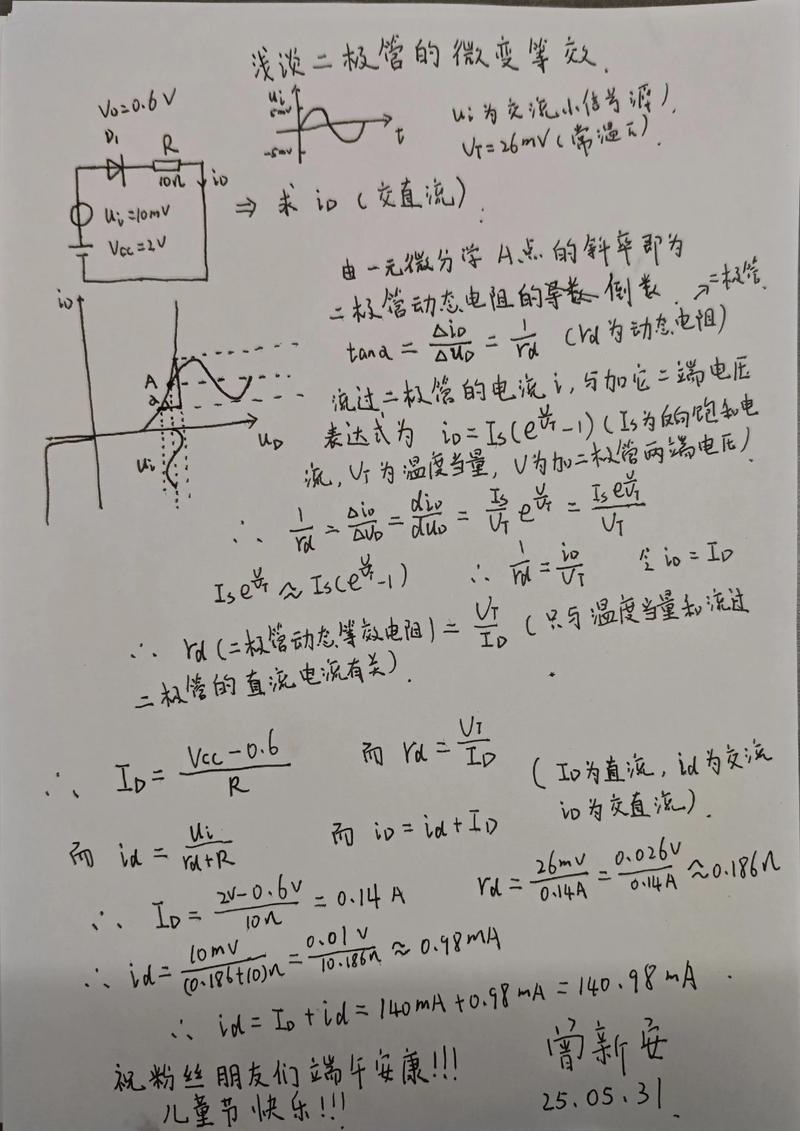 浅谈二极管的微变等效.
V₀=0.6V
D₁
R
10Ω
i_D
ui=10mV
Vcc=2V
ui
5mV
-5mV
t
ui为交流小信号源).
U_T=26mV(常温下).
⇒ 求 i_D (交直流).
由一元微分学A点的斜率即为
二极管动态电阻的导数 倒数. ↗二极管.
tanα = Δi_D/ΔU_D = 1/rd (rd为动态电阻)
i_D
A
a
U_D
ui
流过二极管的电流i,与加它二端电压
表达式为 i_D=Is(e^(U/U_T)-1)(Is为反向饱和电
流,U_T为温度当量,V为加二极管两端电压)
∴ 1/rd = Δi_D/ΔU_D = di_D/du_D = Is/U_T e^(U/U_T) = Is e^(U/U_T)/U_T
Is e^(U/U_T) ≈ Is(e^(U/U_T)-1) ∴ 1/rd = i_D/U_T 令i_D=I_D
∴ rd(二极管动态等效电阻)= U_T/I_D (只与温度当量和流过
二极管的直流电流有关).
∴ I_D = (Vcc-0.6)/R 而 rd = U_T/I_D
(I_D为直流,id为交流
i_D为交直流).
而 id = ui/(rd+R) 而 i_D=id+I_D
∴ I_D = (2V-0.6V)/10Ω = 0.14A rd = 26mV/0.14A = 0.026V/0.14A ≈0.186Ω
∴ id = 10mV/(0.186+10)Ω = 0.01V/10.186Ω ≈ 0.98mA
∴ id = I_D + id = 140mA+0.98mA = 140.98mA.
祝粉丝朋友们端午安康!!!
儿童节快乐!!!
曾新安
25.05.31.